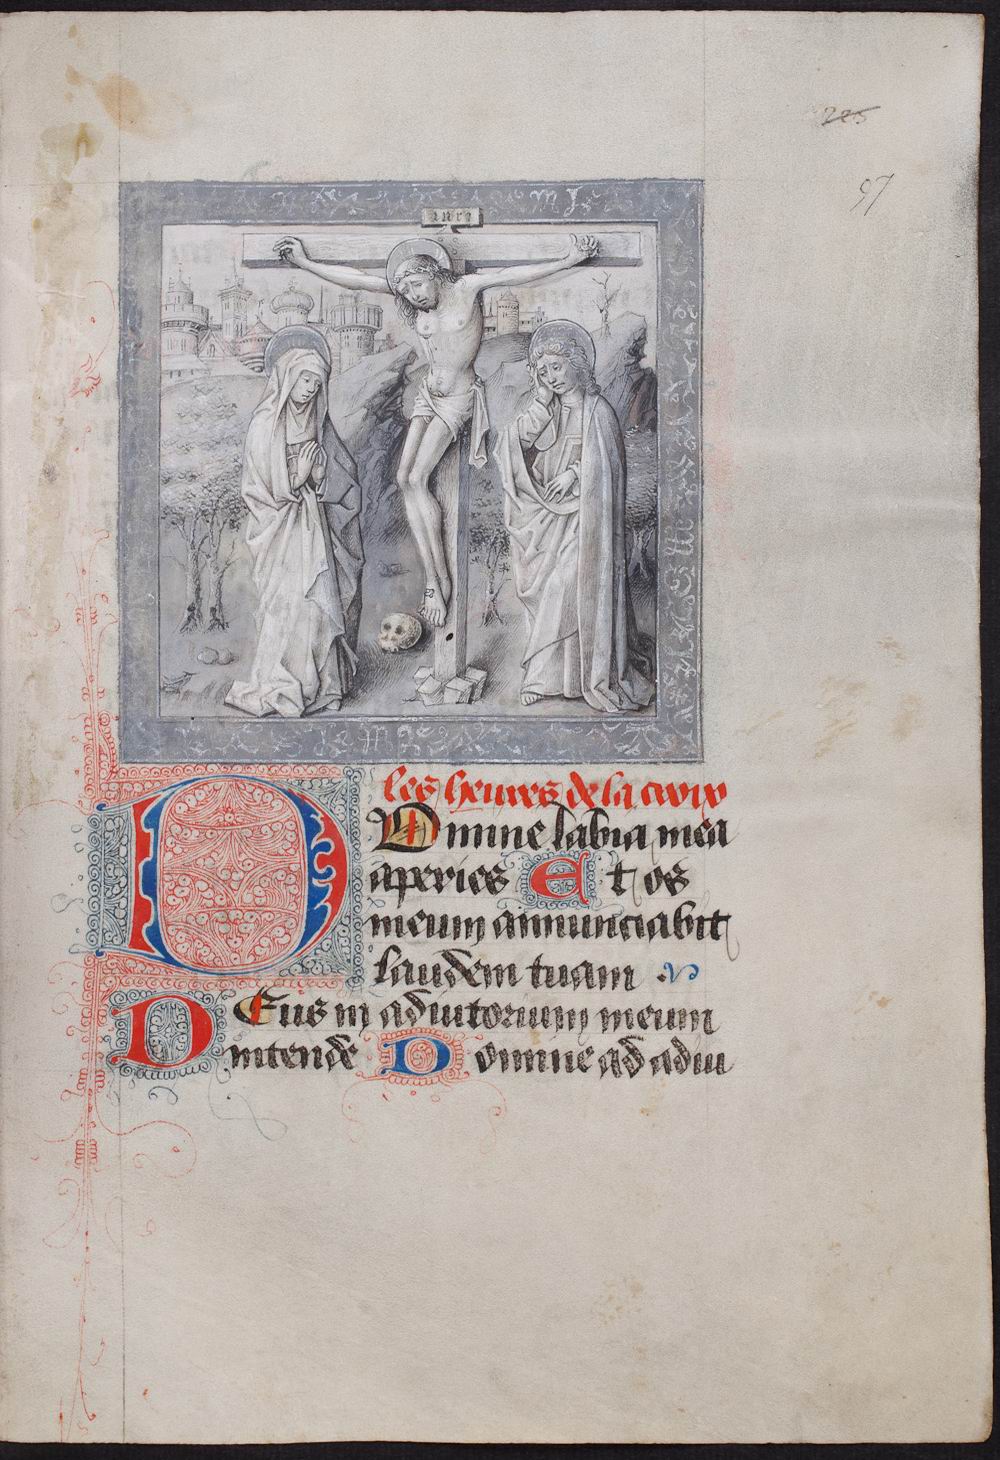 225
97
inri
les heures de la croix
DOmine labia mea
aperies Et os
meum annunciabit
laudem tuam
DEus in adiutorium meum
intende Domine ad adiu